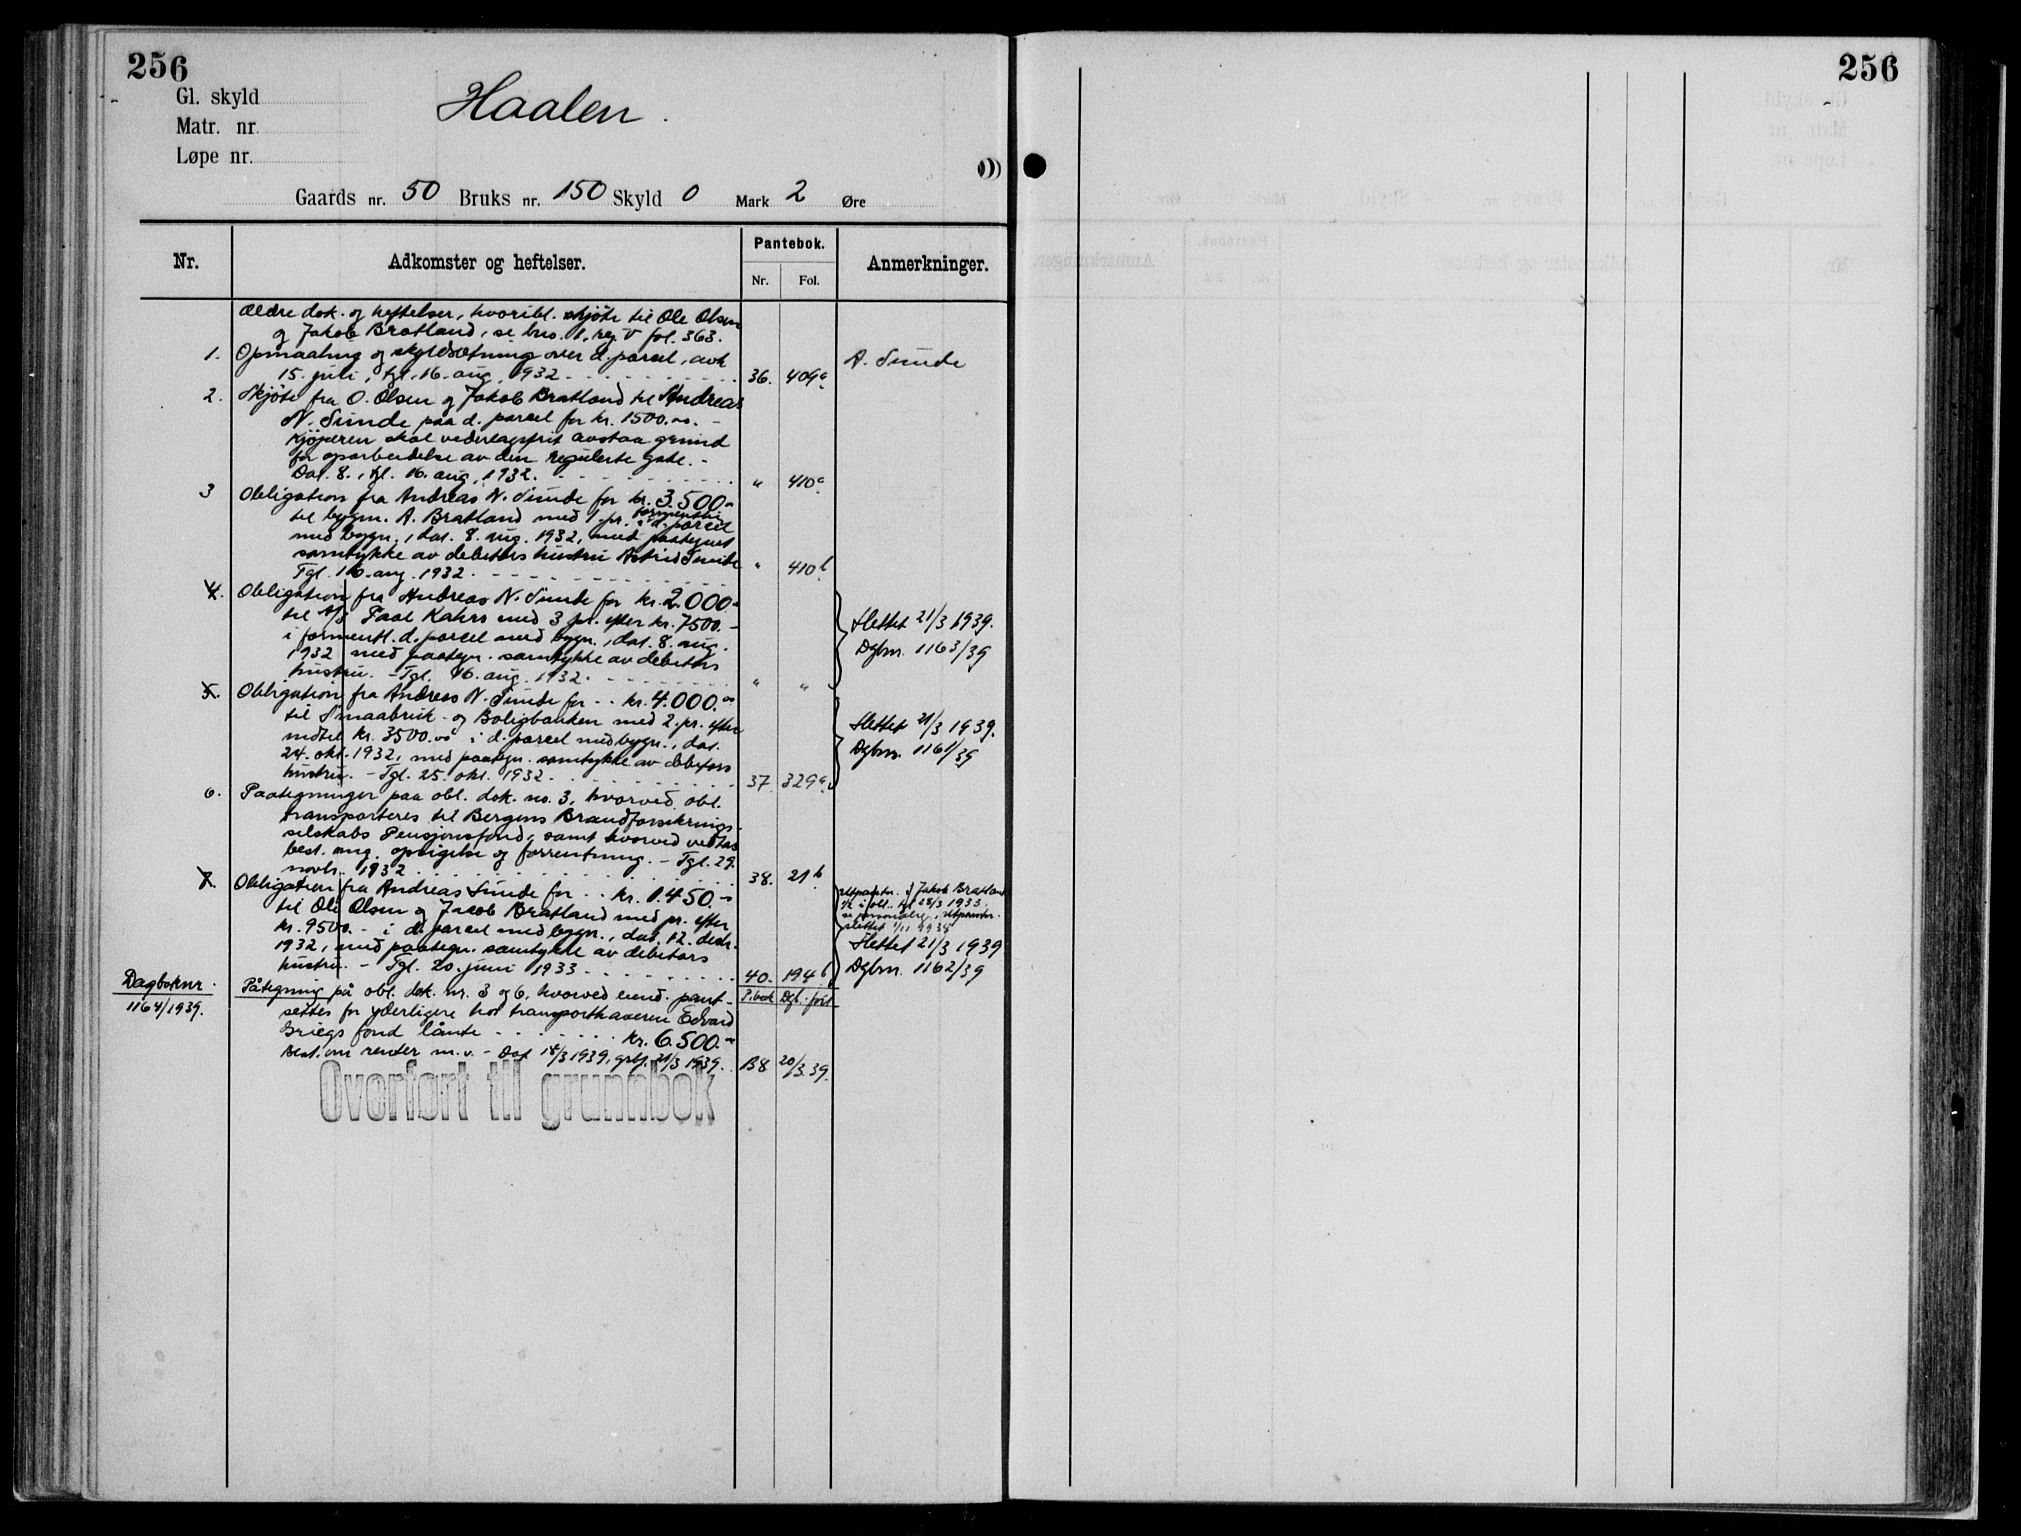 256
256
Gl. skyld
Haalen.
Matr. nr.
Løpe nr.
Gaards nr. 50 Bruks nr. 150 Skyld 0 Mark 2 Øre
Nr. Adkomster og heftelser. Pantebok. Anmerkninger.
Nr. Fol.
Ældre dok. og heftelser, hvoribl. skjöte til Ole Olsen
og Jakob Bratland, se brs. 1, reg. V fol. 363.
1. Opmaaling og skyldsætning over d. parcel, avh.
15. juli, tgl. 16. aug. 1932 36. 409a A. Sunde
2. Skjöte fra O. Olsen og Jakob Bratland til Andreas
N. Sunde paa d. parcel for kr. 1500.00. -
Kjöperen skal vederlagsfrit avstaa grund
for oparbeidelse av den regulerte gate. -
Dat. 8., tgl. 16. aug. 1932. " 410a
3 Obligation fra Andreas N. Sunde for kr. 3.500.-
til bygm. A. Bratland med 1. pr. i d. parcel
med bygn., dat. 8. aug. 1932, med paategnet
samtykke av debitors hustru Astrid Sunde
Tgl. 16. aug. 1932. " 410b
4. Obligation fra Andreas N. Sunde for kr. 2.000.-
til A/S Paal Kahrs med 3 pr. efter kr. 7500.-
i formentl. d. parcel med bygn., dat. 8. aug.
1932 med paategn. samtykke av debitors
hustru. - Tgl. 16. aug. 1932. " "
Slettet 21/3 1939.
Dgbnr. 1163/39
5. Obligation fra Andreas N. Sunde for .. kr. 4.000.00
til Smaabruk- og Boligbanken med 2. pr. efter
nedtil kr. 3500.00 i d. parcel med bygn., dat.
24. okt. 1932, med paategn. samtykke av debitors
hustru. - Tgl. 25. okt. 1932. 37 329a
Slettet 21/3 1939.
Dgbnr. 1161/39
6. Paategninger paa obl. dok. no. 3, hvorved obl.
transporteres til Bergens Brandforsikrings-
selskabs Pensjonsfond, samt hvorved vedtas
best. ang. opsigelse og forrentning. - Tgl. 29.
novbr. 1932 38. 21b
7. Obligation fra Andreas Sunde for .. kr. 1.450.-
til Ole Olsen og Jacob Bratland med pr. efter
kr. 9500.- i d. parcel med bygn., dat. 12. decbr.
1932, med paategn. samtykke av debitors
hustru. - Tgl. 20. juni 1933 40. 194b
Jakob Bratland
1/2 i obl.
slettet 1/11 1938
Slettet 21/3 1939
Dgbnr. 1162/39
Dagboknr.
1164/1939.
Påtegning på obl. dok. nr. 3 og 6, hvorved eiend. pant- P.bok Dgb. - ført
settes for yderligere hos transporthaveren Edvard
Griegs fond lånte kr. 6.500.-
Best. om renter m.v. - Dat 18/3 1939, grbf. 21/3 1939. B8 20/3.39.
Overført til grunnbok